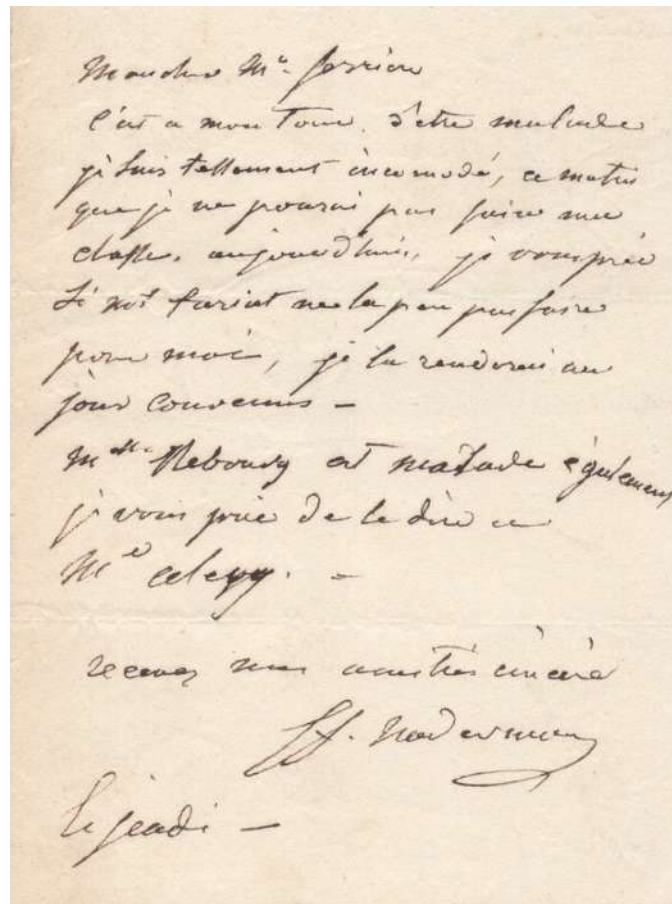 Moncher Mr. ferrière
C'est a mon Tour, d'etre malade
je suis tellement incomodé, ce matin
que je ne pourai pas faire ma
classe, aujourd'hui, je vous prie
Si mdlle ne la peu pas faire
pour moi, je la renderai au
jour convenus -
Melle Rebourg est malade également
je vous prie de le dire a
Me
recevez mes amitiés cincère
ff. naderman
le jeudi -